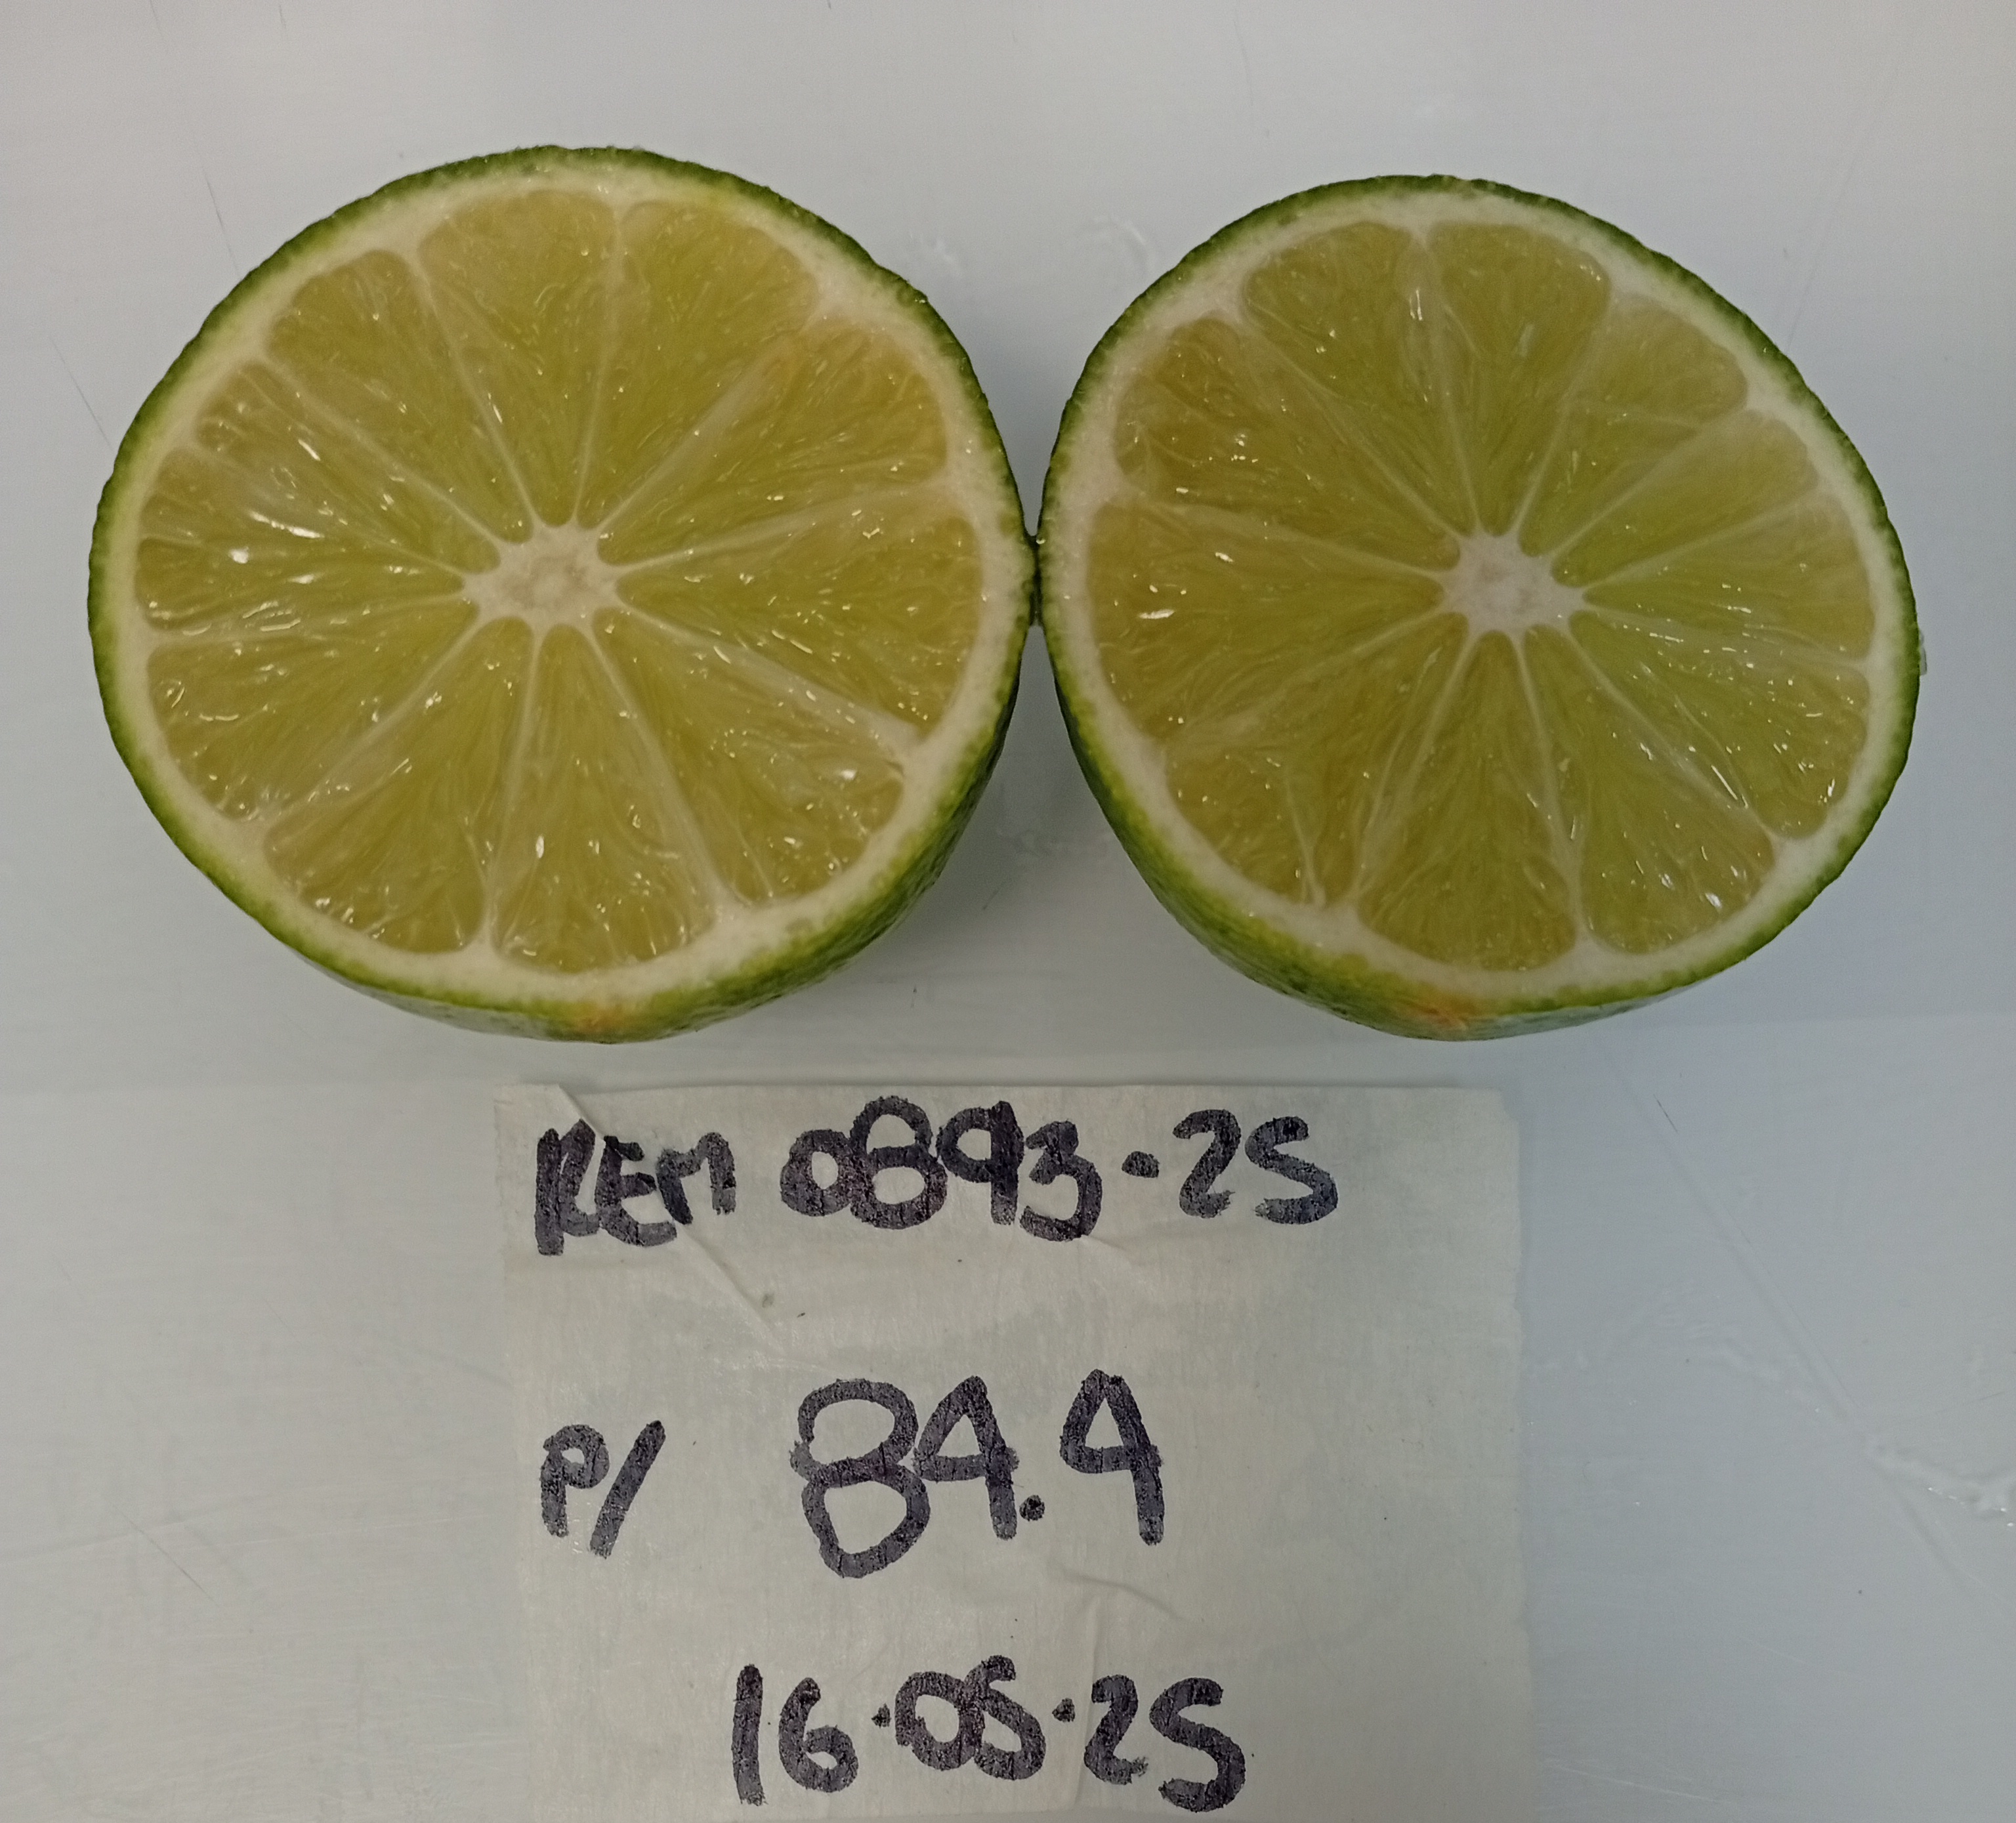 REM 0893-25
P/ 84.4
16.05.25